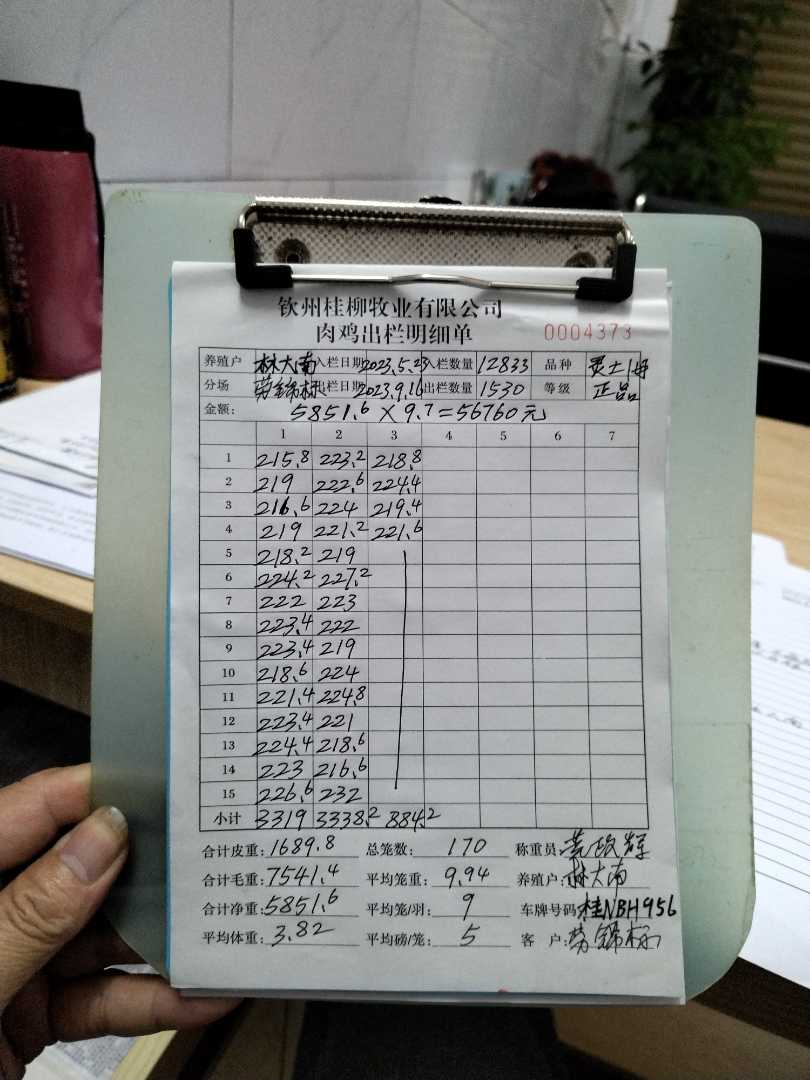 钦州桂柳牧业有限公司
肉鸡出栏明细单 0004373
养殖户 林大南 入栏日期 2023.5.23 入栏数量 12833 品种 灵士1号
分场 劳锦标 出栏日期 2023.9.16 出栏数量 1530 等级 正品
金额: 5851.6 × 9.7 = 56760元
1 2 3 4 5 6 7
1 215.8 223.2 218.8
2 219 222.6 224.4
3 216.6 224 219.4
4 219 221.2 221.6
5 218.2 219
6 224.2 227.2
7 222 223
8 223.4 222
9 223.4 219
10 218.6 224
11 221.4 224.8
12 223.4 221
13 224.4 218.6
14 223 216.6
15 226.6 232
小计 3319 3338.2 884.2
合计皮重: 1689.8 总笼数: 170 称重员:
合计毛重: 7541.4 平均笼重: 9.94 养殖户: 林大南
合计净重: 5851.6 平均笼/羽: 9 车牌号码: 桂NBH956
平均体重: 3.82 平均磅/笼: 5 客户: 劳锦标